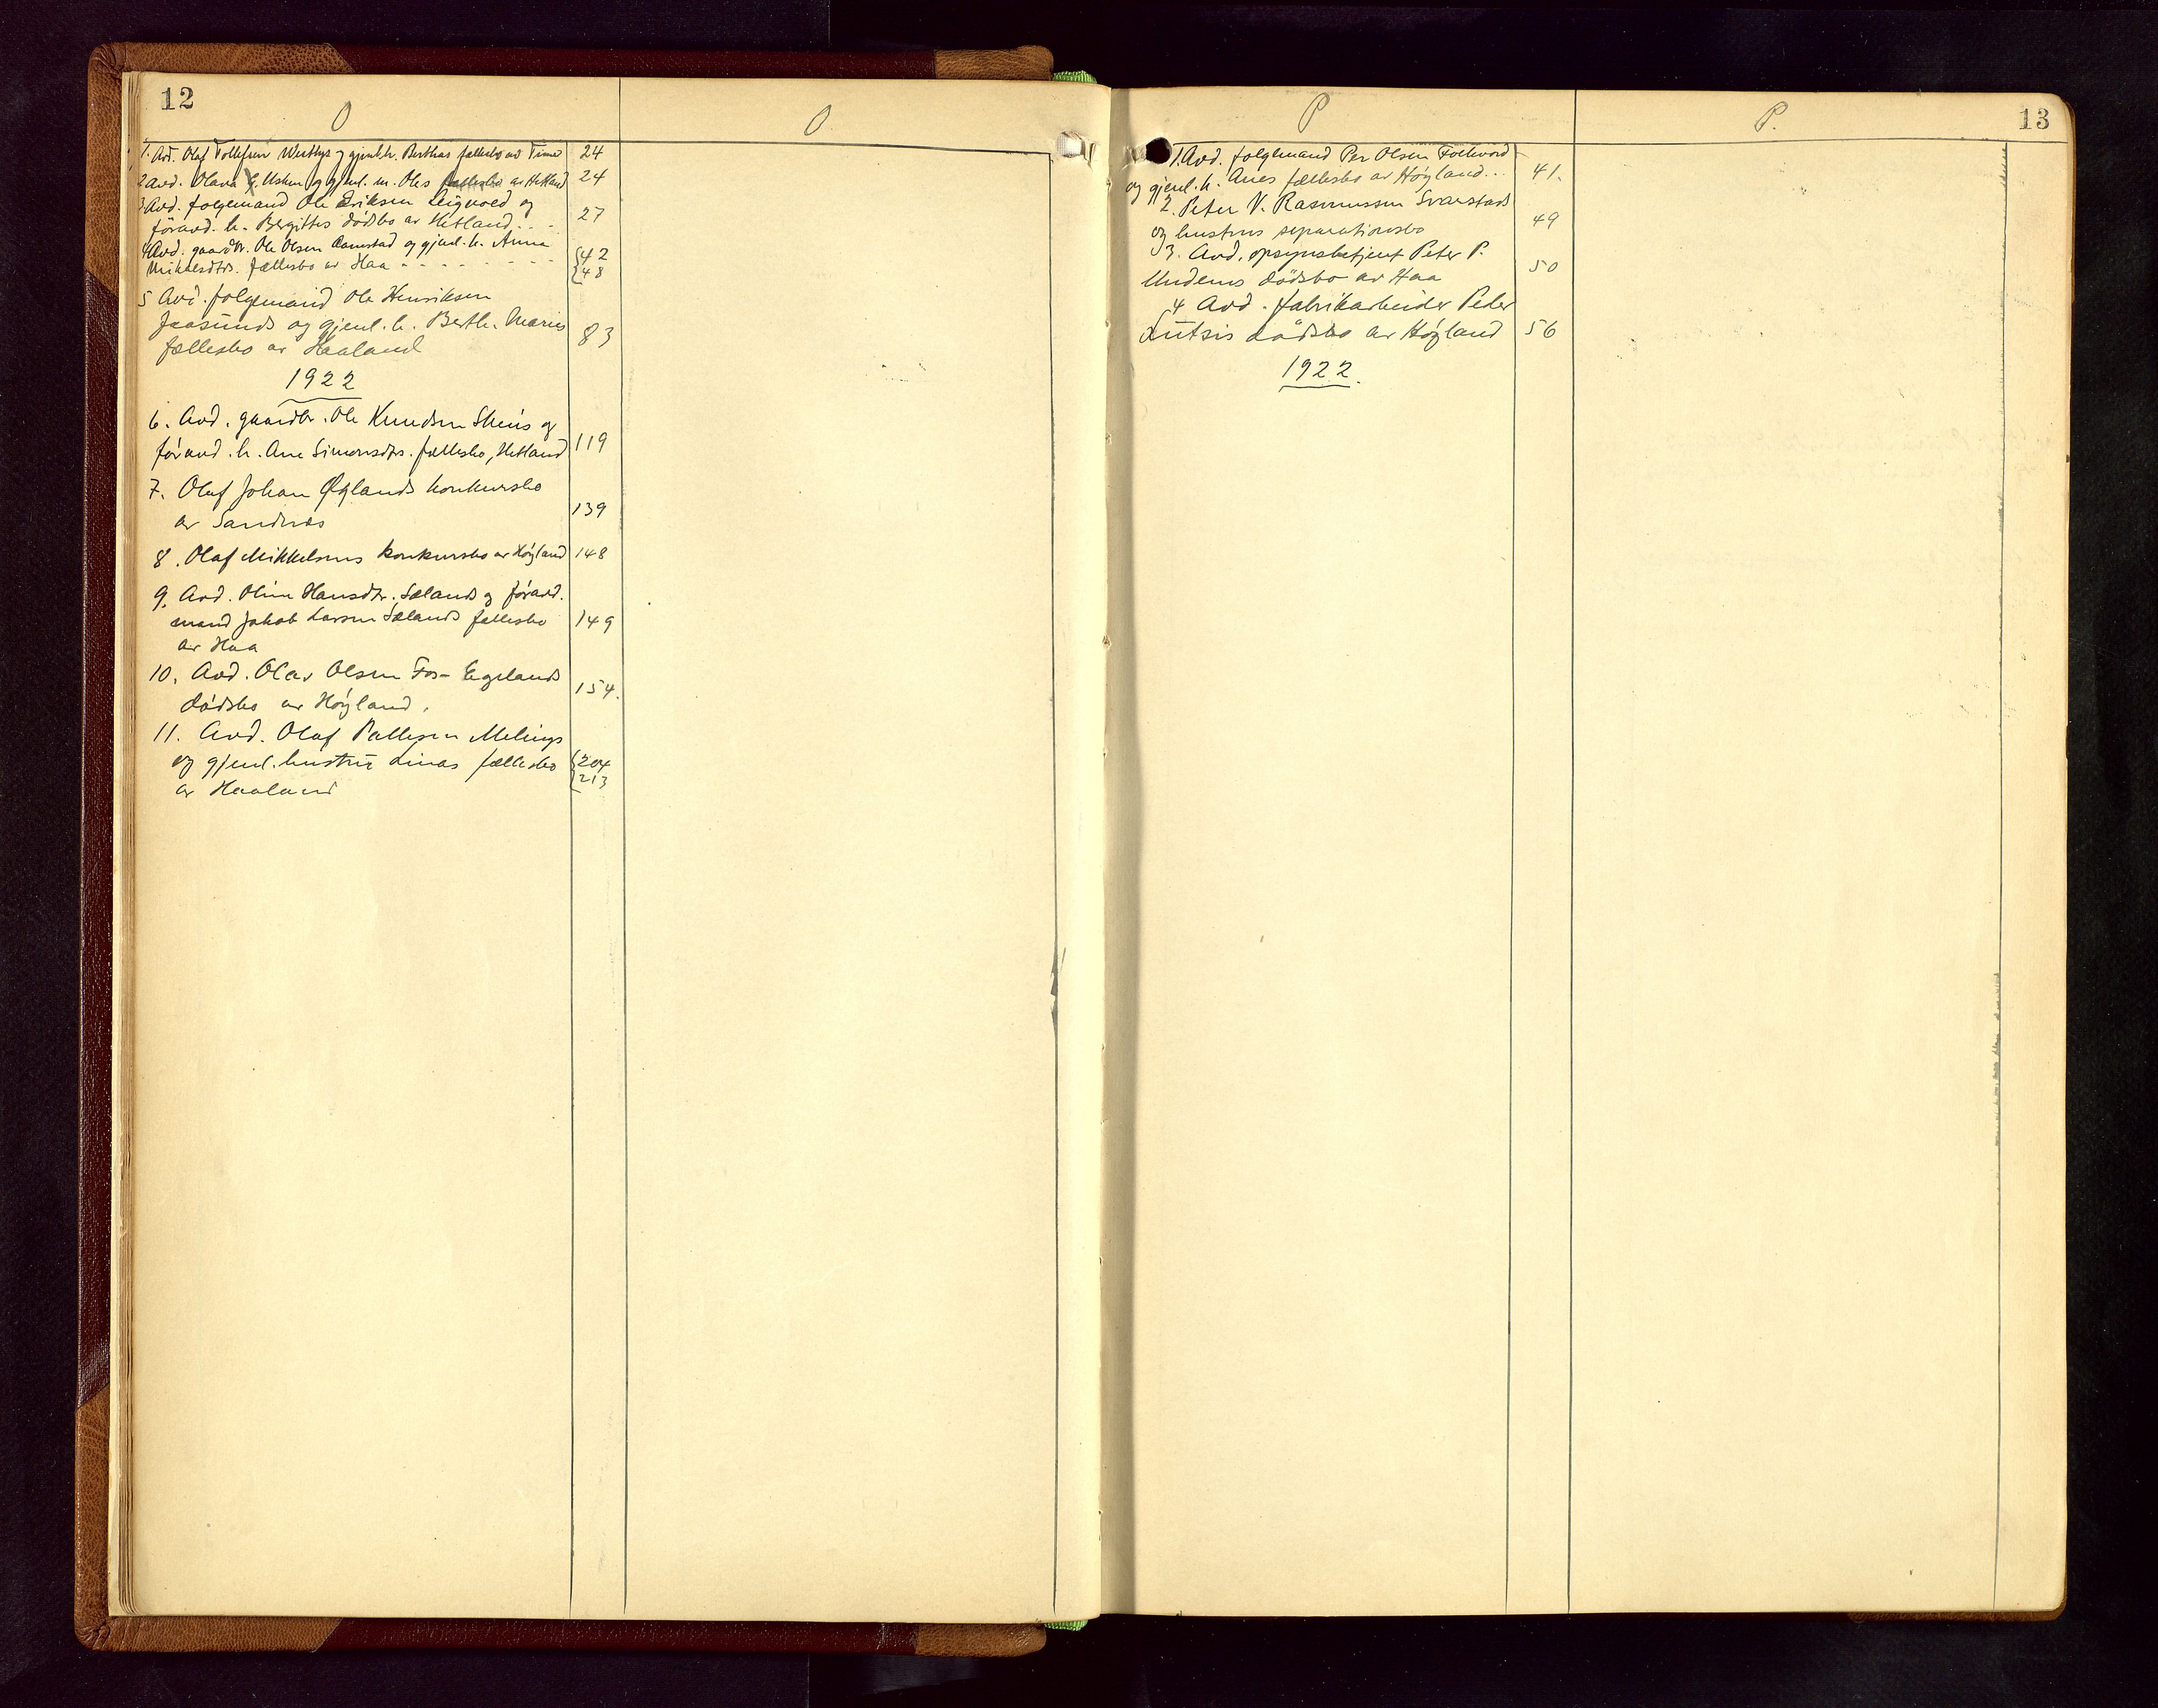 12
O
O
1. Avd. Olaf Tollefsen Westbys og gjenl. h. Berthas fællesbo av Time 24
2 Avd. Olava E. Usken og gjenl. m. Oles fællesbo av Hetland 24
3 Avd. folgemand Ole Eriksen Leigvold og
föravd. h. Bergittes dödsbo av Hetland... 27
4 Avd. gaardbr. Ole Olsen og gjenl. h. Anna
Mikkelsdtrs. fællesbo av Haa - - - - - {42
{48
5 Avd. folgemand Ole Henriksen
Jaasunds og gjenl. h. Berthe Maries
fællesbo av Haaland 83
1922
6. Avd. gaardbr. Ole Knudsen Skeies og
föravd. h. Ane Simonsdtrs. fællesbo, Hetland 119
7. Olaf Johan Øglands konkursbo
av Sandnæs 139
8. Olaf Mikkelsens konkursbo av Höyland 148
9. Avd. Oline Hansdtr. Sælands og föravd.
mand Jakob Larsen Sælands fællesbo 149
av Haa
10. Avd. Olav Olsen Fos-Egelands
dödsbo av Höyland. 154.
11. Avd. Olaf Pallesen Melings
og gjenl. hustru Linas fællesbo {204
{213
av Haaland
P
P.
13
1. Avd. folgemand Per Olsen Folkvord
og gjenl. h. Anes fællesbo av Höyland... 41.
2. Peter V. Rasmussen Svarstads
og hustrus separationsbo 49
3. Avd. opsynsbetjent Peter P.
Undems dödsbo av Haa 50
4 Avd. fabrikarbeider Peter
Lutsis dödsbo av Höyland 56
1922.